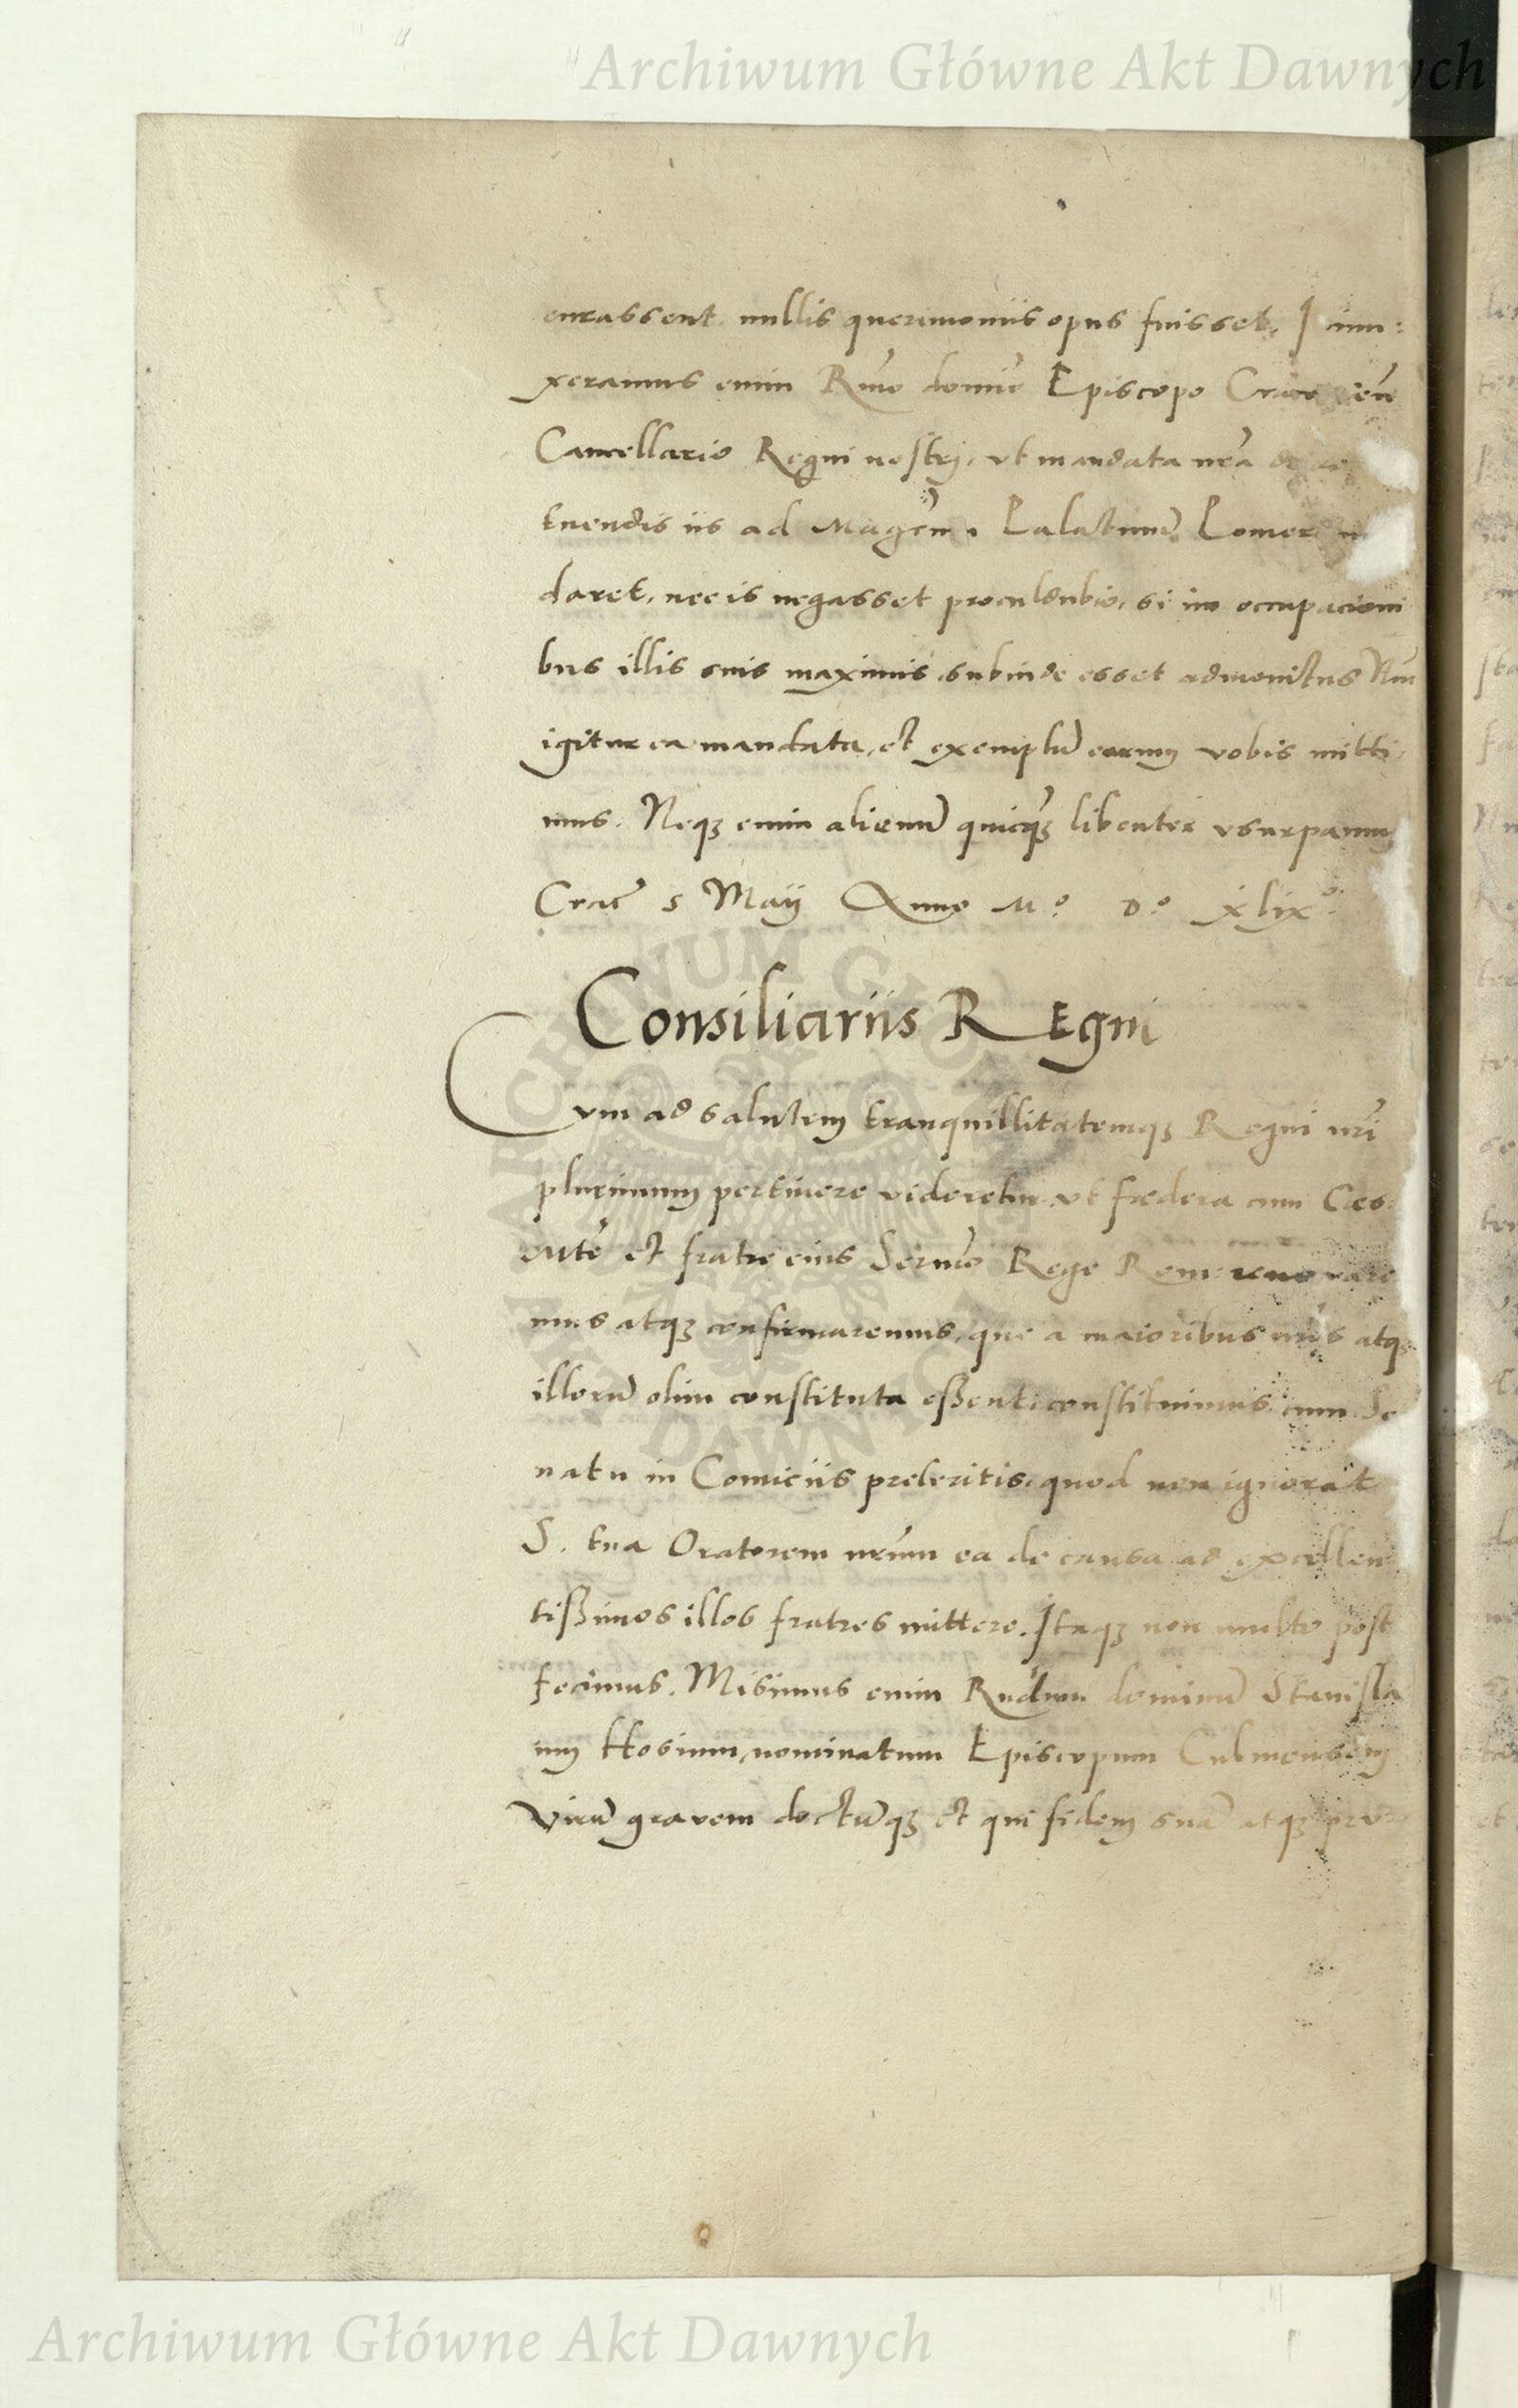 Archiwum Główne Akt Dawnych
curassent, nullis querimoniis opus fuisset. Iniun:
xeramus enim Rmo domino Episcopo Cracovien
Cancellario Regni nostri, ut mandata nra de
tuendis iis ad Magcm Palatinum Pomer
daret, nec is negasset proculdubio, si in occupacioni
bus illis suis maximis subinde esset admonitus Nunc
igitur ea mandata, et exemplum earum vobis mitti
mus. Neqz enim alienum quicqz libenter usurpamus
Crac 5 Maij Anno Mo. Do. xlixo.
Consiliariis REgni
Cum ad salutem tranquillitatemqz Regni nri
plurimum pertinere videretur, ut fœdera cum Cæs:
Mte et fratre eius Sermo Rege Rom: renovare
mus atqz confirmaremus, que a maioribus nris atqz
illorum olim constituta eßent: constituimus cum Se
natu in Comiciis preteritis, quod non ignorat
S. tua Oratorem nrum ea de causa ad excellen
tißimos illos fratres mittere. Itaqz non multo post
fecimus. Misimus enim Rndum dominum Stanisla
um Hosium, nominatum Episcopum Culmensem
Virum gravem doctumqz et qui fidem suam atqz pru
Archiwum Główne Akt Dawnych